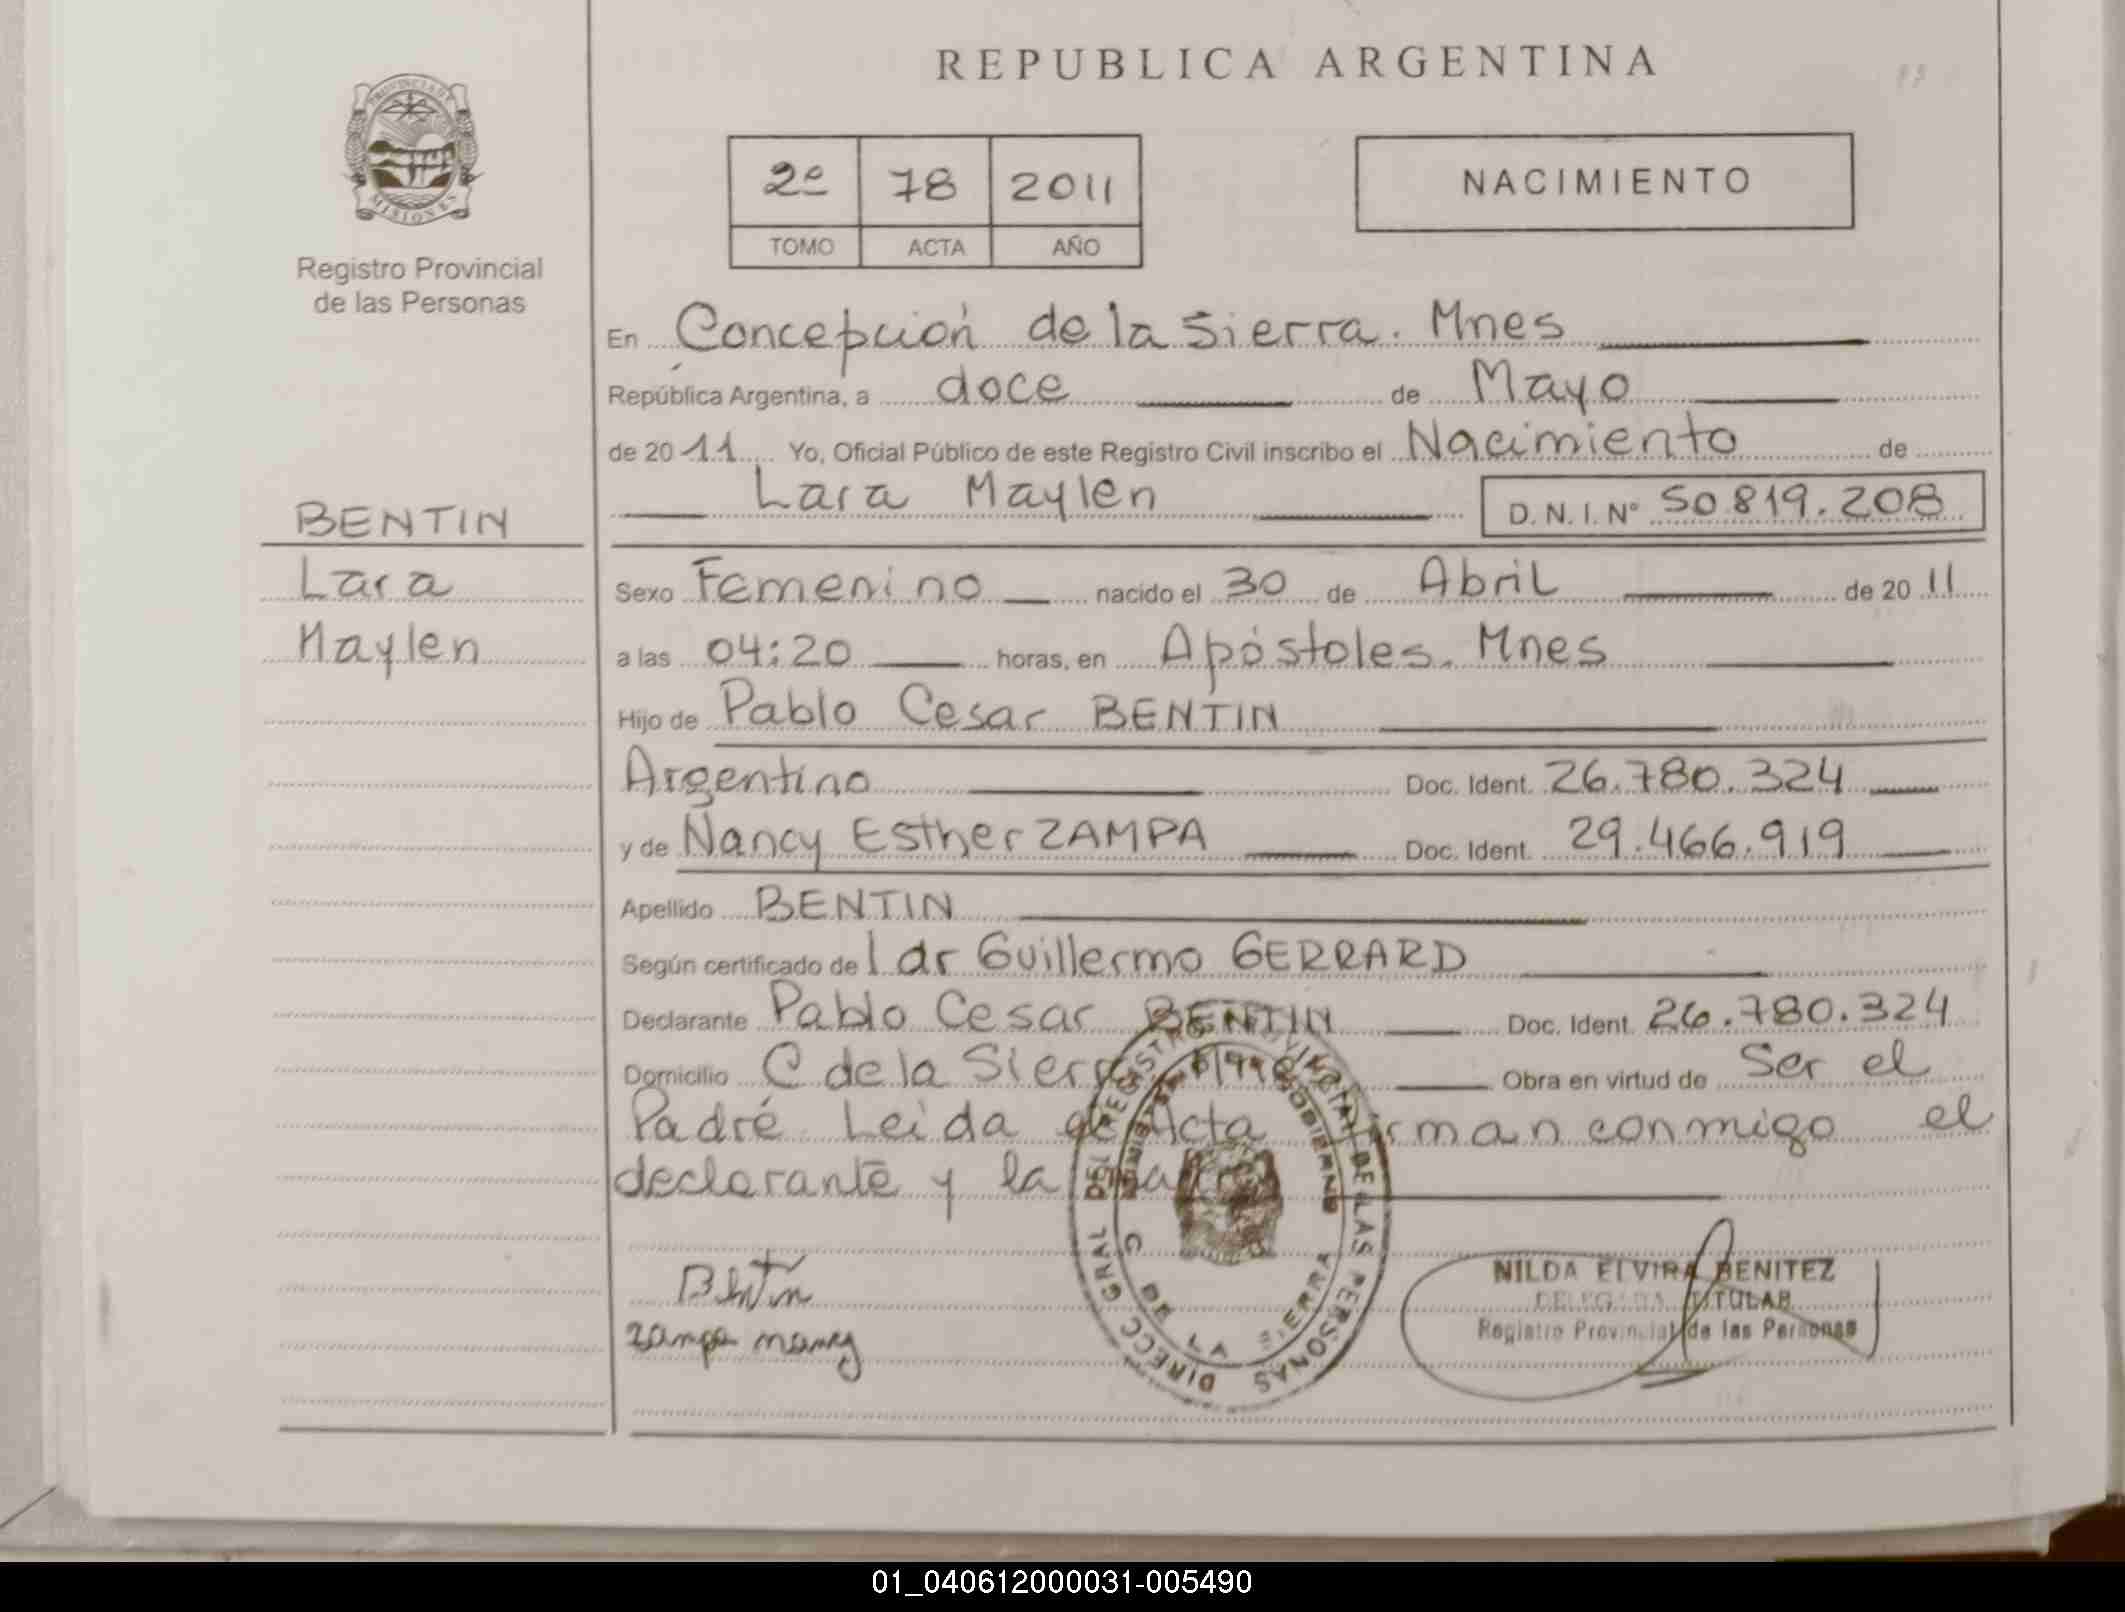 REPUBLICA ARGENTINA
PROVINCIA DE
MISIONES
Registro Provincial
de las Personas
2º 78 2011
TOMO ACTA AÑO
NACIMIENTO
En Concepción de la Sierra. Mnes
República Argentina, a doce de Mayo
de 2011 Yo, Oficial Público de este Registro Civil inscribo el Nacimiento de
Lara Maylen D.N.I. Nº 50.819.208
BENTIN
Lara
Maylen
Sexo Femenino nacido el 30 de Abril de 2011
a las 04:20 horas, en Apóstoles. Mnes
Hijo de Pablo Cesar BENTIN
Argentino Doc. Ident. 26.780.324
y de Nancy Esther ZAMPA Doc. Ident. 29.466.919
Apellido BENTIN
Según certificado del dr Guillermo GERRARD
Declarante Pablo Cesar BENTIN Doc. Ident. 26.780.324
Domicilio C de la Sierra Obra en virtud de Ser el
Padre Leida el Acta firman conmigo el
declarante y la madre
DIRECC GRAL DEL REGISTRO PROVINCIAL DE LAS PERSONAS
C DE LA SIERRA
Bentin
zampa nancy
NILDA ELVIRA BENITEZ
DELEGADA TITULAR
Registro Provincial de las Personas
01_040612000031-005490